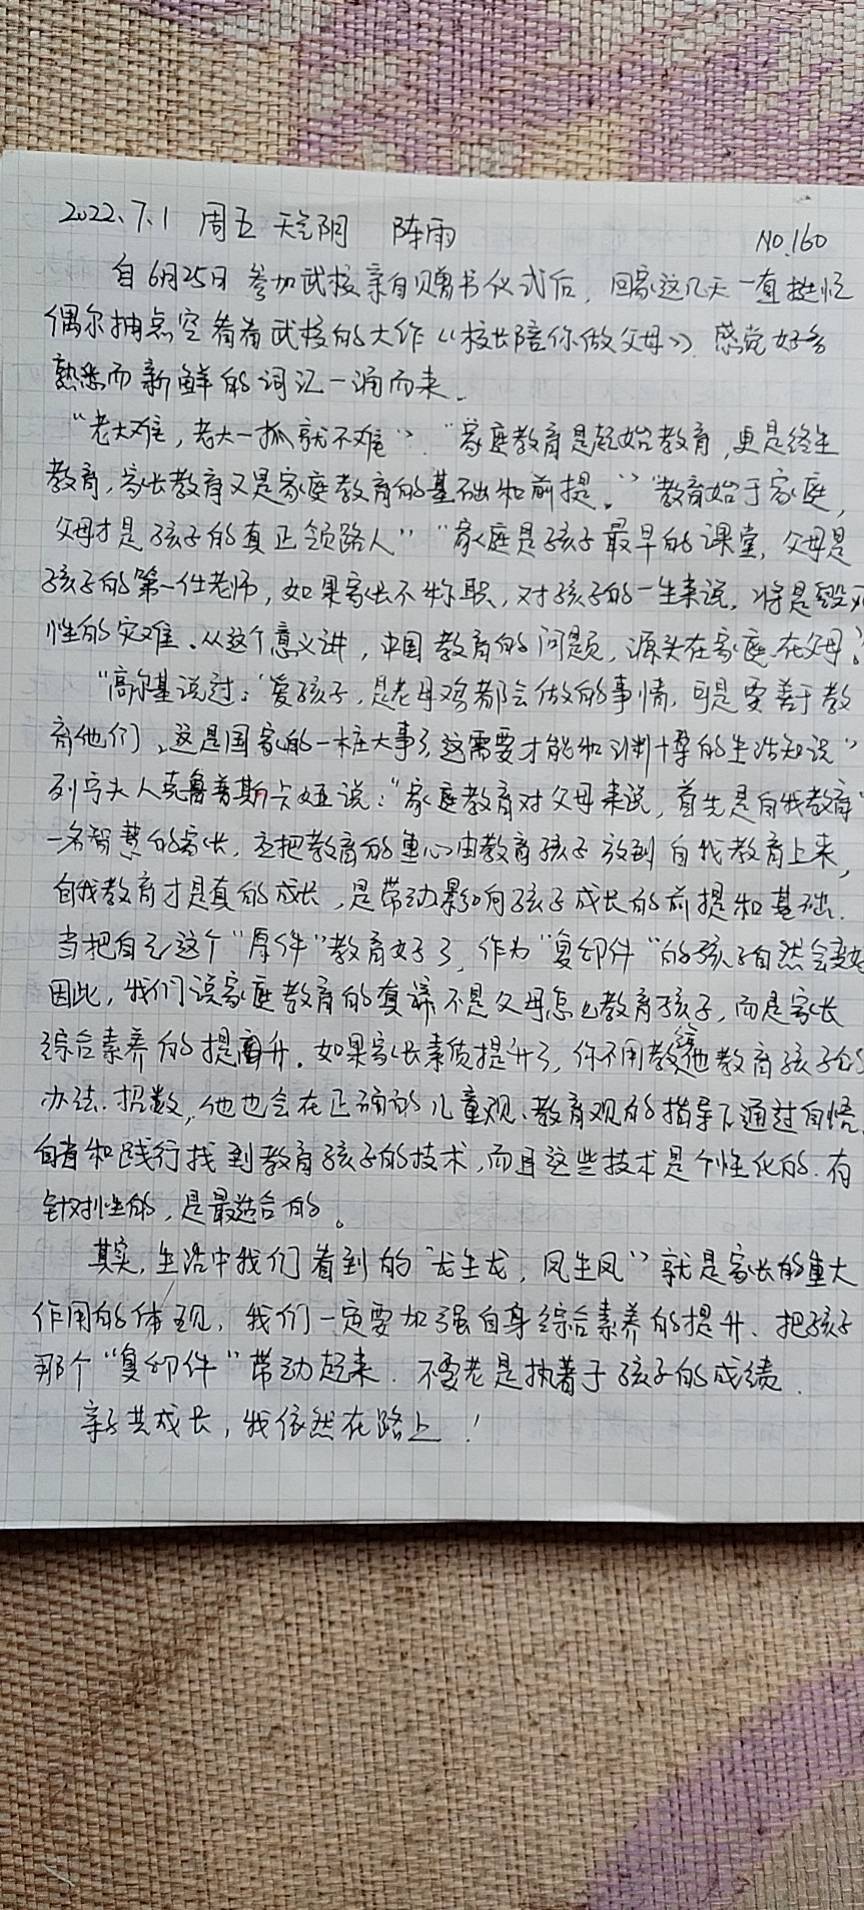 2022、7、1 周五 天气阴 阵雨
NO.160
自6月25日参加武校亲自赠书仪式后，回家这几天一直挺忙
偶尔抽点空看看武校的大作《校长陪你做父母》、感觉好多
熟悉而新鲜的词汇一涌而来。
“老大难，老大一抓就不难”、“家庭教育是起始教育，更是终生
教育，家长教育又是家庭教育的基础和前提。”“教育始于家庭，
父母才是孩子的真正领路人”“家庭是孩子最早的课堂，父母是
孩子的第一任老师，如果家长不称职，对孩子的一生来说，将是毁灭
性的灾难。从这个意义讲，中国教育的问题，源头在家庭、在父母。”
“高尔基说过：‘爱孩子，是老母鸡都会做的事情，可是要善于教
育他们，这是国家的一桩大事了，这需要才能和渊博的生活知识”
列宁夫人克鲁普斯卡娅说：“家庭教育对父母来说，首先是自我教育”
一名智慧的家长，应把教育的重心由教育孩子放到自我教育上来，
自我教育才是真的成长，是带动影响孩子成长的前提和基础.
当把自己这个“原件”教育好了，作为“复印件”的孩子自然会变好
因此，我们说家庭教育的真谛不是父母怎么教育孩子，而是家长
综合素养的提升。如果家长素质提升了，你不用教给他教育孩子的
办法、招数，他也会在正确的儿童观、教育观的指导下通过自悟、
自省和践行找到教育孩子的技术，而且这些技术是个性化的、有
针对性的，是最适合的。
其实，生活中我们看到的“龙生龙，凤生凤”就是家长的重大
作用的体现，我们一定要加强自身综合素养的提升、把孩子
那个“复印件”带动起来．不要老是执着于孩子的成绩．
亲子共成长，我依然在路上！